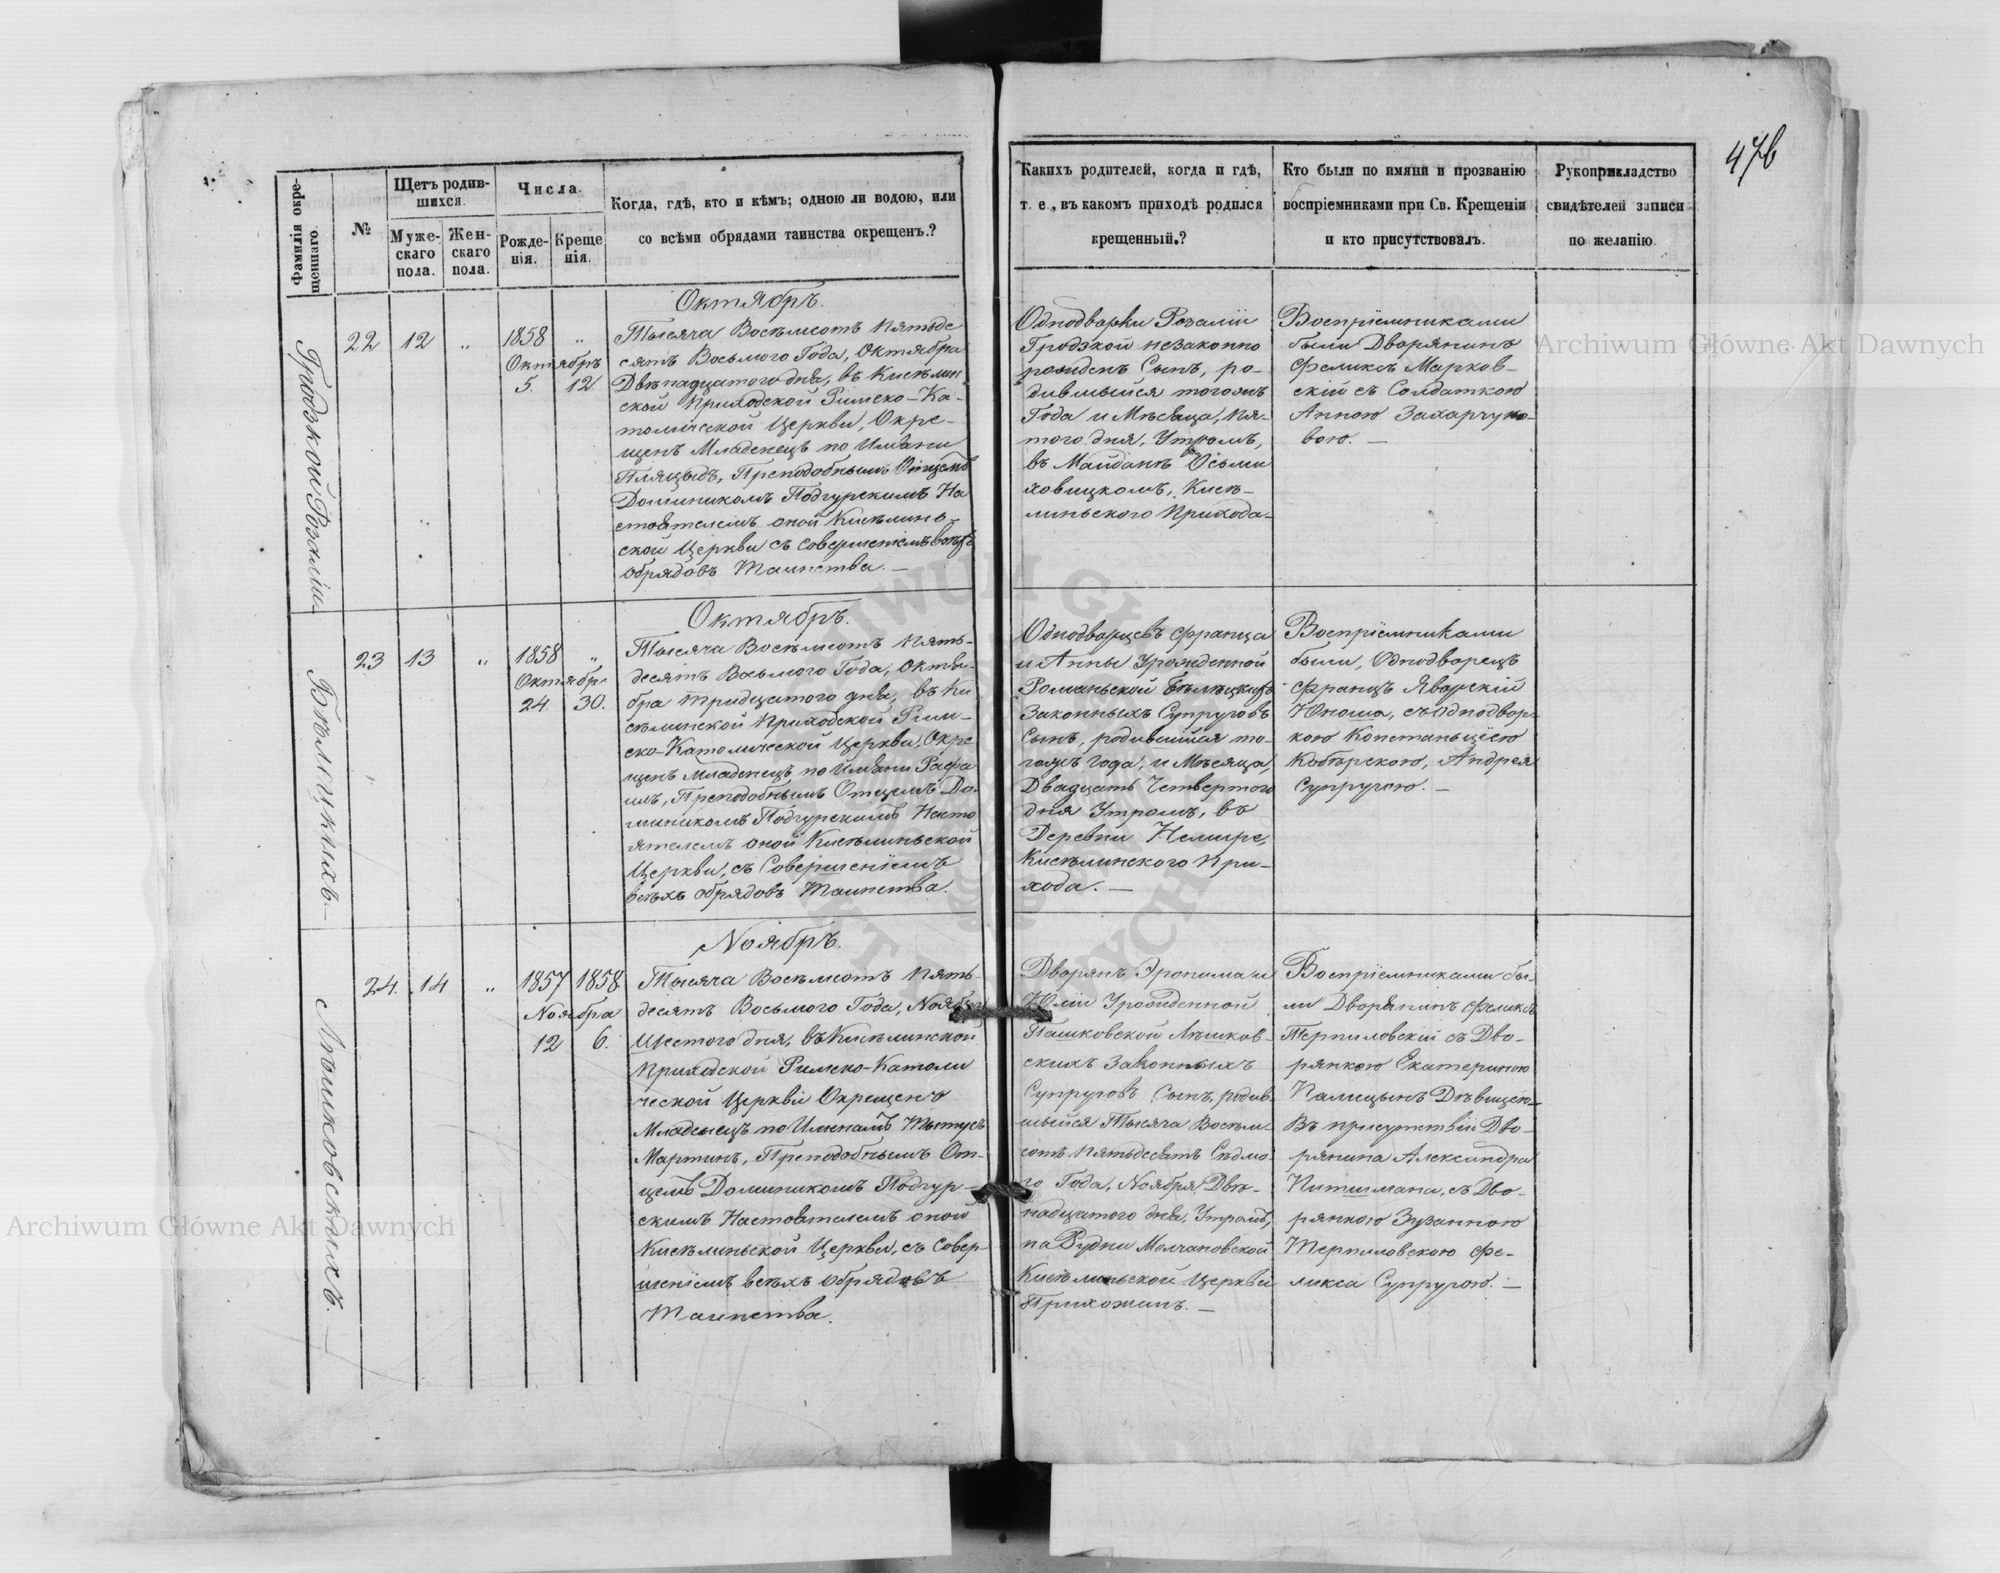 476
Фамилія окре-
щеннаго.
№
Щетъ родив-
шихся.
Муже-
скаго
пола.
Жен-
скаго
пола.
Числа.
Рожде-
нія.
Креще
нія.
Когда, гдѣ, кто и кѣмъ; одною ли водою, или
со всѣми обрядами таинства окрещенъ.?
Какихъ родителей, когда и гдѣ,
т. е., въ какомъ приходѣ родился
крещенный.?
Кто были по имяни и прозванію
воспріемниками при Св. Крещеніи
и кто присутствовалъ.
Рукоприкладство
свидѣтелей записи
по желанію.
Гродзкой Розаліи
22 12 „ 1858 „
Октябрь
5. 12
Октябрь.
Тысяча Восѣмсотъ Пятьде
сятъ Восьмого Года, Октября
Двѣнадцатого дня, въ Кисѣлин
ской Приходской Римско-Ка-
толической Церкви, Окре-
щенъ Младенецъ по Имѣни
Пляцыдъ, Преподобнымъ Отцемъ
Доминикомъ Подгурскимъ На
стоятелемъ оной Кисѣлинь-
ской Церкви съ совершеніемъ всѣхъ
обрядовъ Таинства. —
Однодворки Розаліи
Гродзкой незаконно
рожденъ Сынъ, ро-
дившыйся тогожъ
Года и Мѣсяца, Пя-
того дня, Утромъ,
въ Майданѣ Осьми
ховицкомъ, Кисѣ-
линьского Прихода.
Воспріемниками
были Дворянинъ
Феликсъ Марков-
скій съ Солдаткою
Анною Захарчуко-
вою. —
Бѣлѣцкихъ. —
23 13 „ 1858 „
Октябрь
24. 30.
Октябрь.
Тысяча Восѣмсотъ Пять-
десятъ Восьмого Года, Октя-
бра тридцатого дня, въ Ки
сѣлинской Приходской Рим-
ско-Католической Церкви, Окре
щенъ Младенецъ, по Имѣни Рафа
илъ, Преподобнымъ Отцемъ До-
миникомъ Подгурскимъ Насто
ятелемъ оной Кисѣлиньской
Церкви, съ Совершеніемъ
всѣхъ обрядовъ Таинства.
Однодворцевъ Франца
и Анны Урожденной
Романьской Бѣлѣцкихъ
Законныхъ Супруговъ
Сынъ, родившійся то-
гожъ Года, и Мѣсяца,
Двадцать Четвертого
дня Утромъ, въ
Деревни Немире,
Кисѣлинского При-
хода. —
Воспріемниками
были, Однодворецъ
Францъ Яворскій
Юноша, съ Однодвор-
кою Констаньціею
Кобѣрскою, Андрея
Супругою. —
Люшковскихъ. —
24. 14 „ 1857 1858.
Ноября
12 6.
Ноябрь.
Тысяча Восѣмсотъ Пять-
десятъ Восьмого Года, Ноября
Шестого дня, въ Кисѣлинской
Приходской Римско-Католи
ческой Церкви Окрещенъ
Младенецъ по Именамъ Тытусъ
Мартинъ, Преподобнымъ От-
цемъ Доминикомъ Подгур-
скимъ Настоятелемъ оной
Кисѣлиньской Церкви, съ Совер-
шеніемъ всѣхъ обрядовъ
Таинства.
Дворянъ Эронима и
Юліи Урожденной
Пашковской Люшков-
скихъ Законныхъ
Супруговъ Сынъ, родив-
шыйся Тысяча Восѣм-
сотъ Пятьдесятъ Сѣдмо-
го Года, Ноября Двѣ-
надцатого дня, Утромъ,
на Рудни Молчановской
Кисѣлиньской Церкви
Прихожанъ. —
Воспріемниками бы-
ли Дворянинъ Феликсъ
Терпиловскій съ Дво-
рянкою Екатериною
Палицынъ Дѣвицею
Въ присутствіи Дво-
рянина Александра
Питшмана, съ Дво-
рянкою Зузанною
Терпиловскою Фе-
ликса Супругою. —
Archiwum Główne Akt Dawnych
Archiwum Główne Akt Dawnych